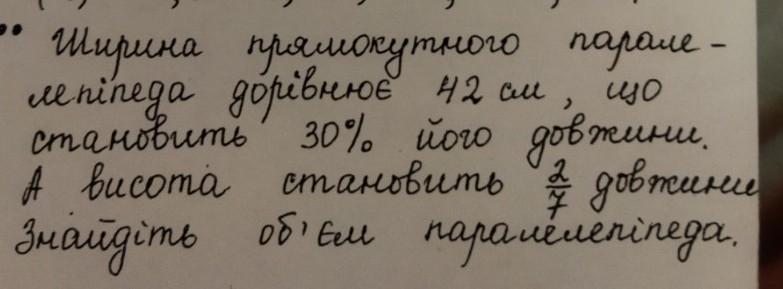 Ширина прямокутного парале-
лепіпеда дорівнює 42 см, що
становить 30% його довжини.
А висота становить 2/7 довжини
Знайдіть об'єм паралелепіпеда.